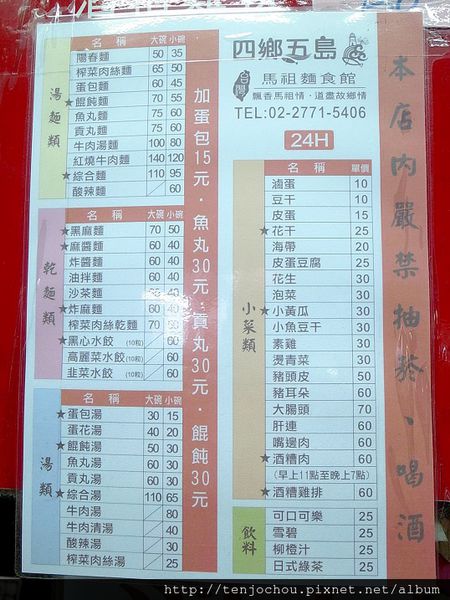 湯麵類
名稱 大碗 小碗
陽春麵 50 35
榨菜肉絲麵 65 50
蛋包麵 60 45
★餛飩麵 70 55
魚丸麵 75 60
貢丸麵 75 60
牛肉湯麵 100 80
紅燒牛肉麵 140 120
★綜合麵 110 95
酸辣麵 / 60
乾麵類
名稱 大碗 小碗
★黑麻麵 70 50
★麻醬麵 60 40
炸醬麵 60 40
油拌麵 60 40
沙茶麵 60 40
★炸麻麵 60 40
榨菜肉絲乾麵 65 50
★黑心水餃(10粒) / 60
高麗菜水餃(10粒) / 60
韭菜水餃(10粒) / 60
湯類
名稱 大碗 小碗
★蛋包湯 30 15
蛋花湯 40 20
★餛飩湯 50 30
魚丸湯 60 30
貢丸湯 60 30
★綜合湯 110 65
牛肉湯 / 80
牛肉清湯 / 50
酸辣湯 / 30
榨菜肉絲湯 / 25
加蛋包15元·魚丸30元·貢丸30元·餛飩30元
四鄉五島
台灣
馬祖麵食館
飄香馬祖情·道盡故鄉情
TEL:02-2771-5406
24H
小菜類
名稱 單價
滷蛋 10
豆干 10
皮蛋 15
★花干 25
海帶 20
皮蛋豆腐 25
花生 30
泡菜 30
★小黃瓜 30
★小魚豆干 30
素雞 30
★燙青菜 30
豬頭皮 50
豬耳朵 60
大腸頭 70
肝連 60
嘴邊肉 60
★酒糟肉 60
(早上11點至晚上7點)
★酒糟雞排 60
飲料
可口可樂 25
雪碧 25
柳橙汁 25
日式綠茶 25
本店內嚴禁抽菸、喝酒
http://tenjochou.pixnet.net/album